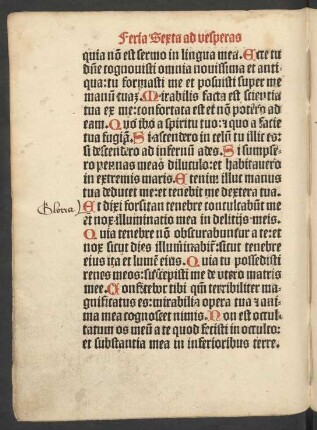 Feria Sexta ad vesperas
quia nō est sermo in lingua mea. Ecce tu
dñe cognouisti omnia nouissima et anti-
qua: tu formasti me et posuisti super me
manū tuaꝫ. Mirabilis facta est scientia
tua ex me: confortata est et nō potero ad
eam. Quo ibo a spiritu tuo: ⁊ quo a facie
tua fugiā. Si ascendero in celū tu illic es:
si descendero ad infernū ades. Si sumpse-
ro pennas meas diluculo: et habitauero
in extremis maris. Etenim illuc manus
tua deducet me: et tenebit me dextera tua.
Gloria Et dixi forsitan tenebre conculcabūt me
et nox illuminatio mea in delitijs meis.
Quia tenebre nō obscurabuntur a te: et
nox sicut dies illuminabit̄: sicut tenebre
eius ita et lumē eius. Quia tu possedisti
renes meos: suscepisti me de vtero matris
mee. Confitebor tibi qm̄ terribiliter mag-
nificatus es: mirabilia opera tua ⁊ ani-
ma mea cognoscet nimis. Non est occul-
tatum os meū a te quod fecisti in occulto:
et substantia mea in inferioribus terre.